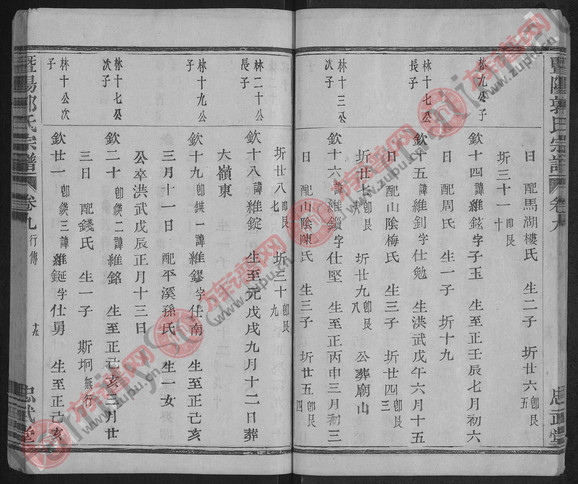 暨陽郭氏宗譜 卷九
忠武堂
日 配馬湖樓氏 生二子 圻廿六 即艮五
圻三十一 即艮十
林九公子
欽十四 諱維鉉字子玉 生至正壬辰七月初六
日 配周氏 生一子 圻十九
林十七公長子
欽十五 諱維釗字仕勉 生洪武戊午六月十五
日 配山陰梅氏 生三子 圻廿四 即艮三
圻廿九 即艮八 公葬廟山
林十三公次子
欽十六 諱維鎖字仕堅 生至正丙申三月初三
日 配山陰陳氏 生三子 圻廿五 即艮四
圻廿八 即艮七 圻三十 即艮九
林二十公長子
欽十八 諱維錠 生至元戊戌九月十二日葬
大嶺東
林十九公子
欽十九 即鍈一 諱維鏐字仕南 生至正己亥
三月十一日 配平溪孫氏 生一女
公卒洪武戊辰正月十三日
林十七公次子
欽二十 諱維銘 生至正己亥八月廿
三日 配錢氏 生一子 斯坷 無行
林十公次子
欽廿一 即鍈三 諱維鋋字仕男 生至正己亥
暨陽郭氏宗譜 卷九 行傳
忠武堂
族譜網
www.zupu.cn